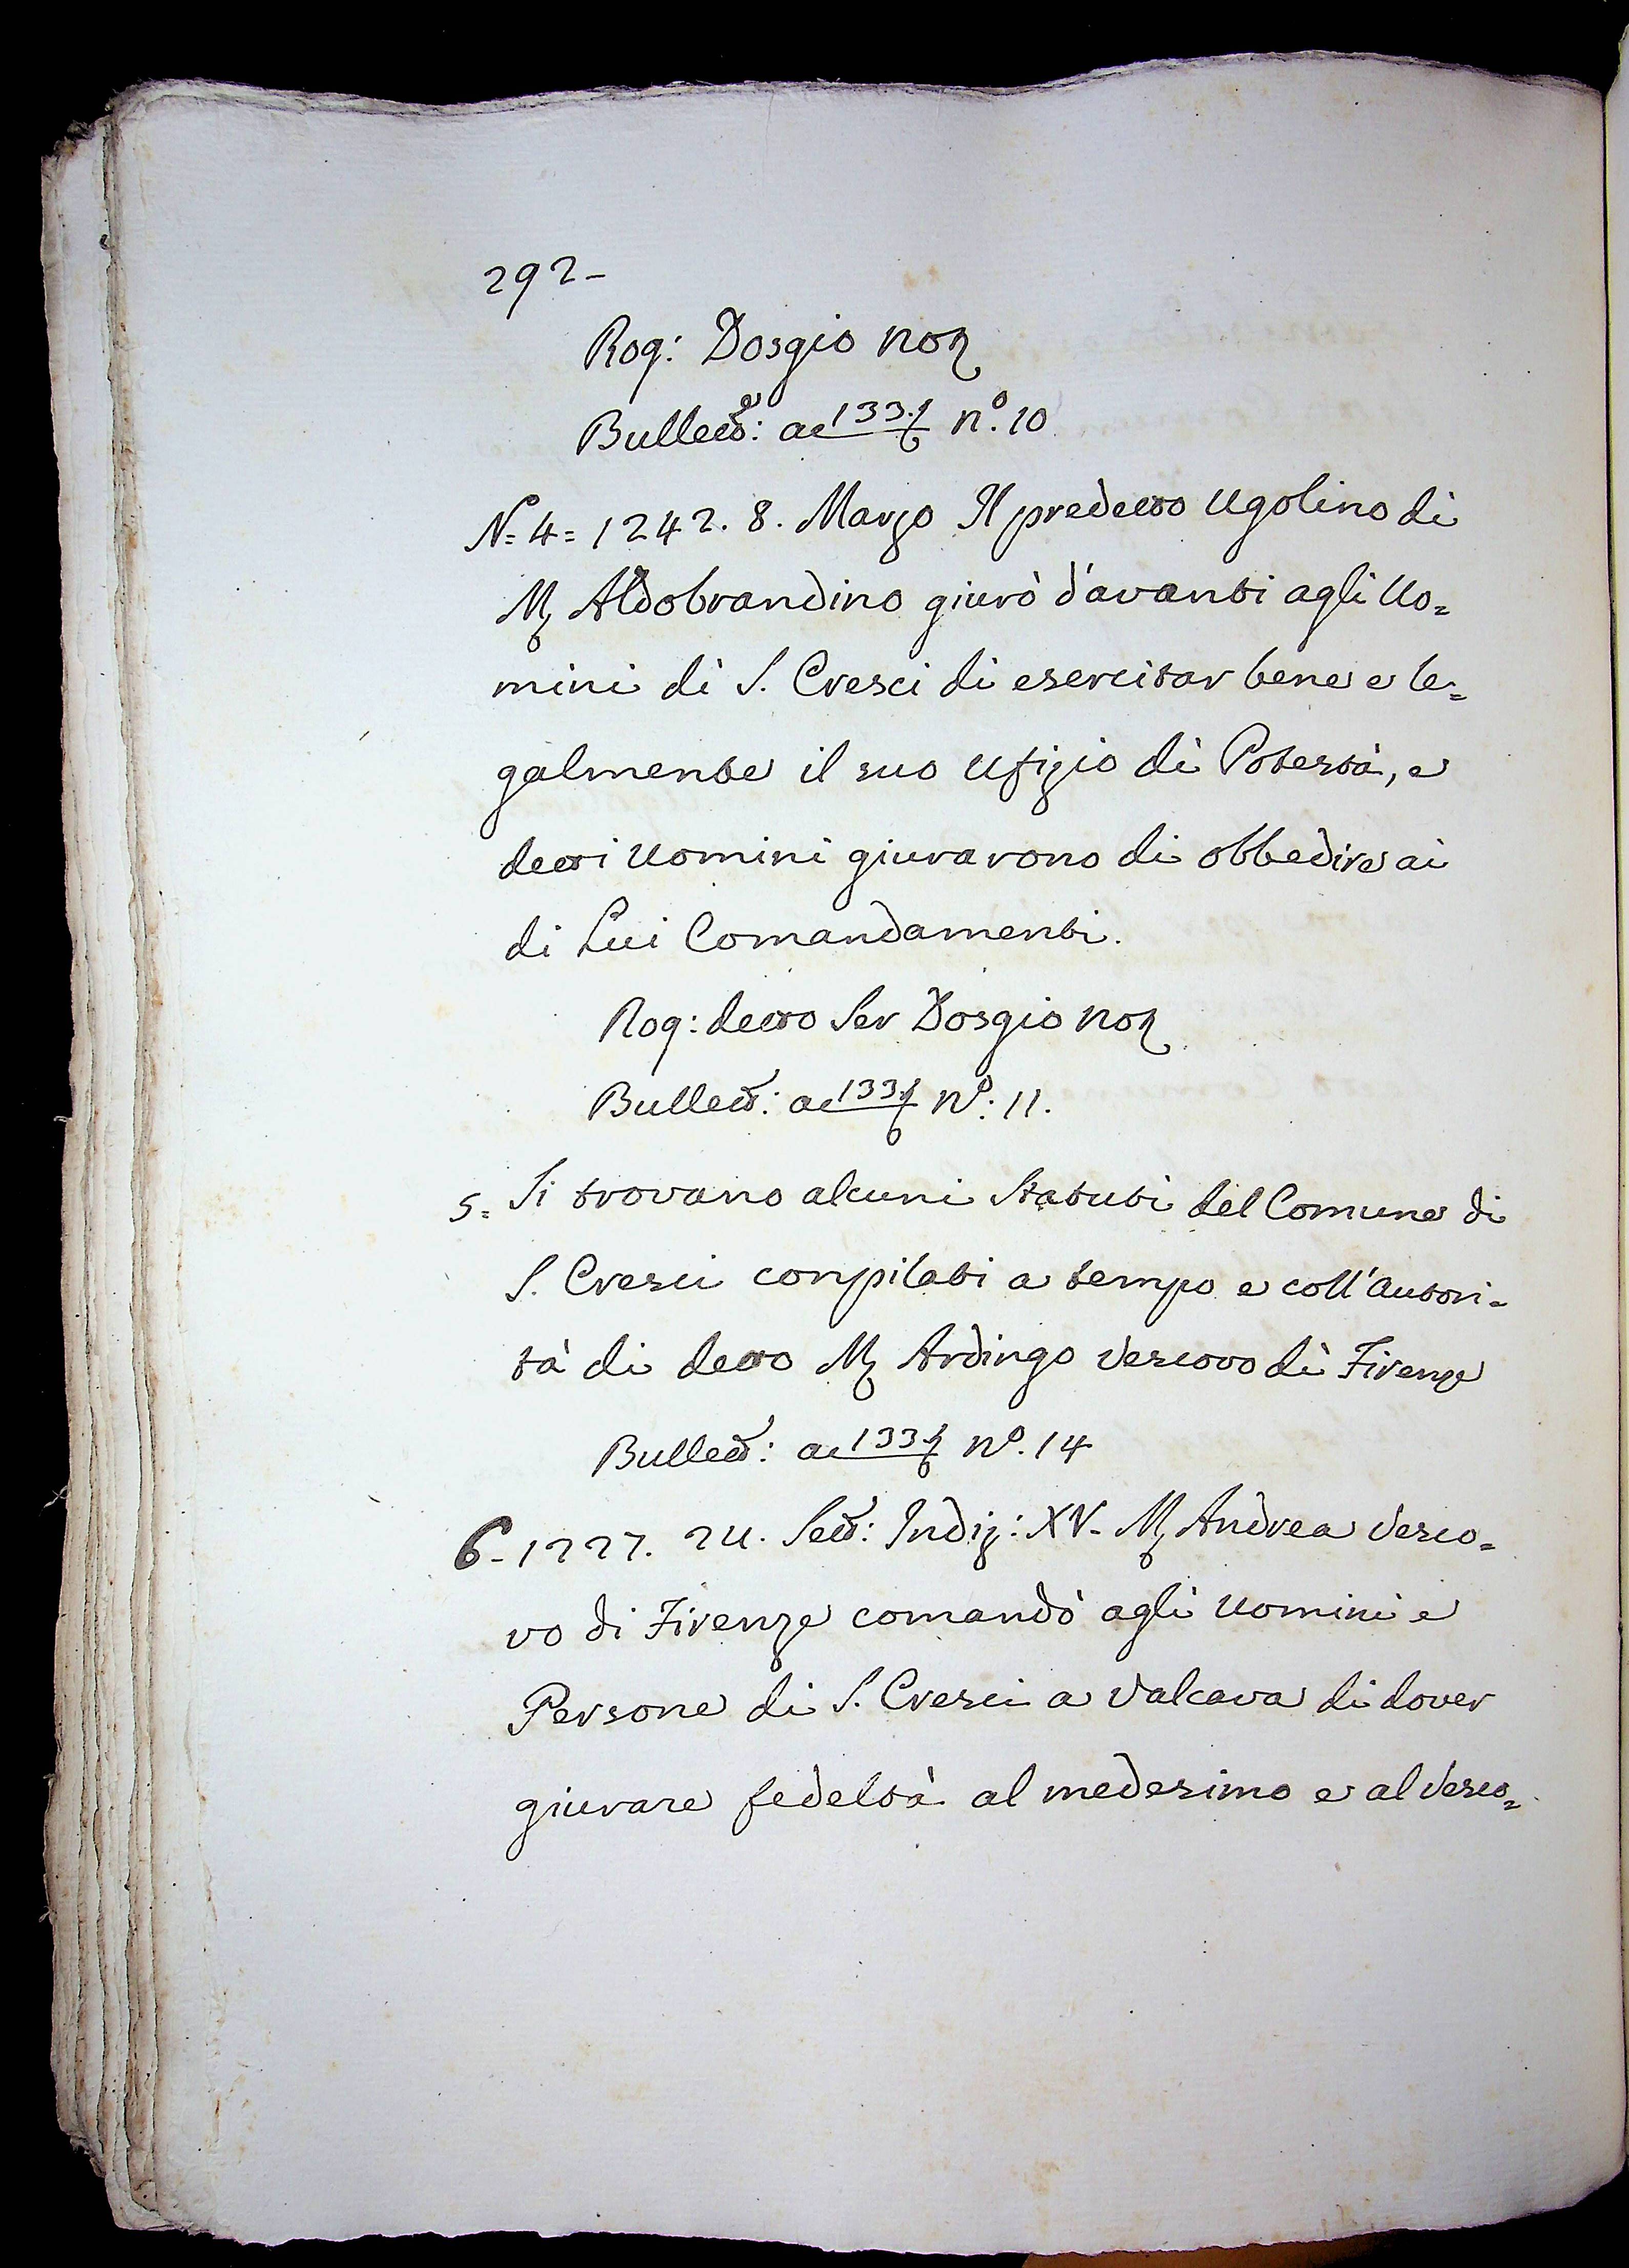 292-
Rog: Dosgio Not
Bullett: a 133 n.o 10
N.= 4= 1242. 8. Marzo Il predetto Ugolino di
M Aldobrandino giurò d'avanti agli Uo=
mini di S. Cresci di esercitar bene e le=
galmente il suo Ufizio di Potestà, e
detti Uomini giurarono di obbedire ai
di Lui Comandamenti.
Rog: detto Ser Dosgio Not
Bullett: a 133 N.o: 11.
5= Si trovano alcuni Statuti del Comune di
S. Cresci conpilati a tempo e coll'autori=
tà di detto M Ardingo Vescovo di Firenze
Bullett: a 133 N.o. 14
6- 1227. 24. Sett: Indiz: XV. M Andrea Vesco=
vo di Firenze comandò agli Uomini e
Persone di S. Cresci a Valcava di dover
giurare fedeltà al medesimo e al Vesco=